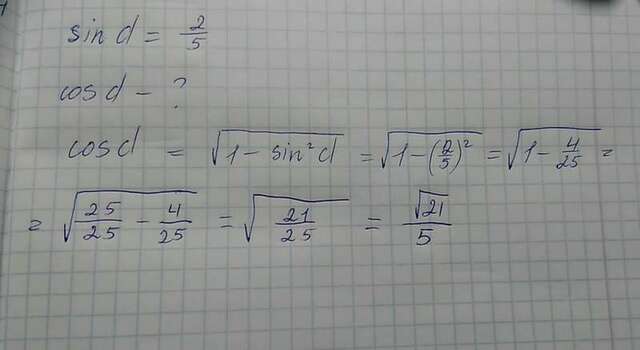 sin α = 2/5
cos α - ?
cos α = √(1 - sin²α) = √(1 - (2/5)²) = √(1 - 4/25) =
= √(25/25 - 4/25) = √(21/25) = √21/5